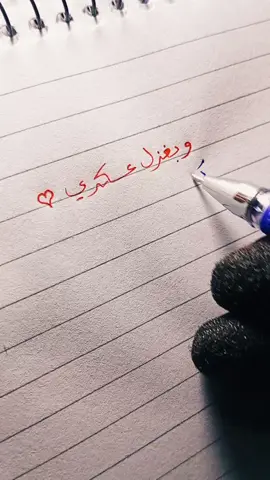 وبغزل عسكري ♡